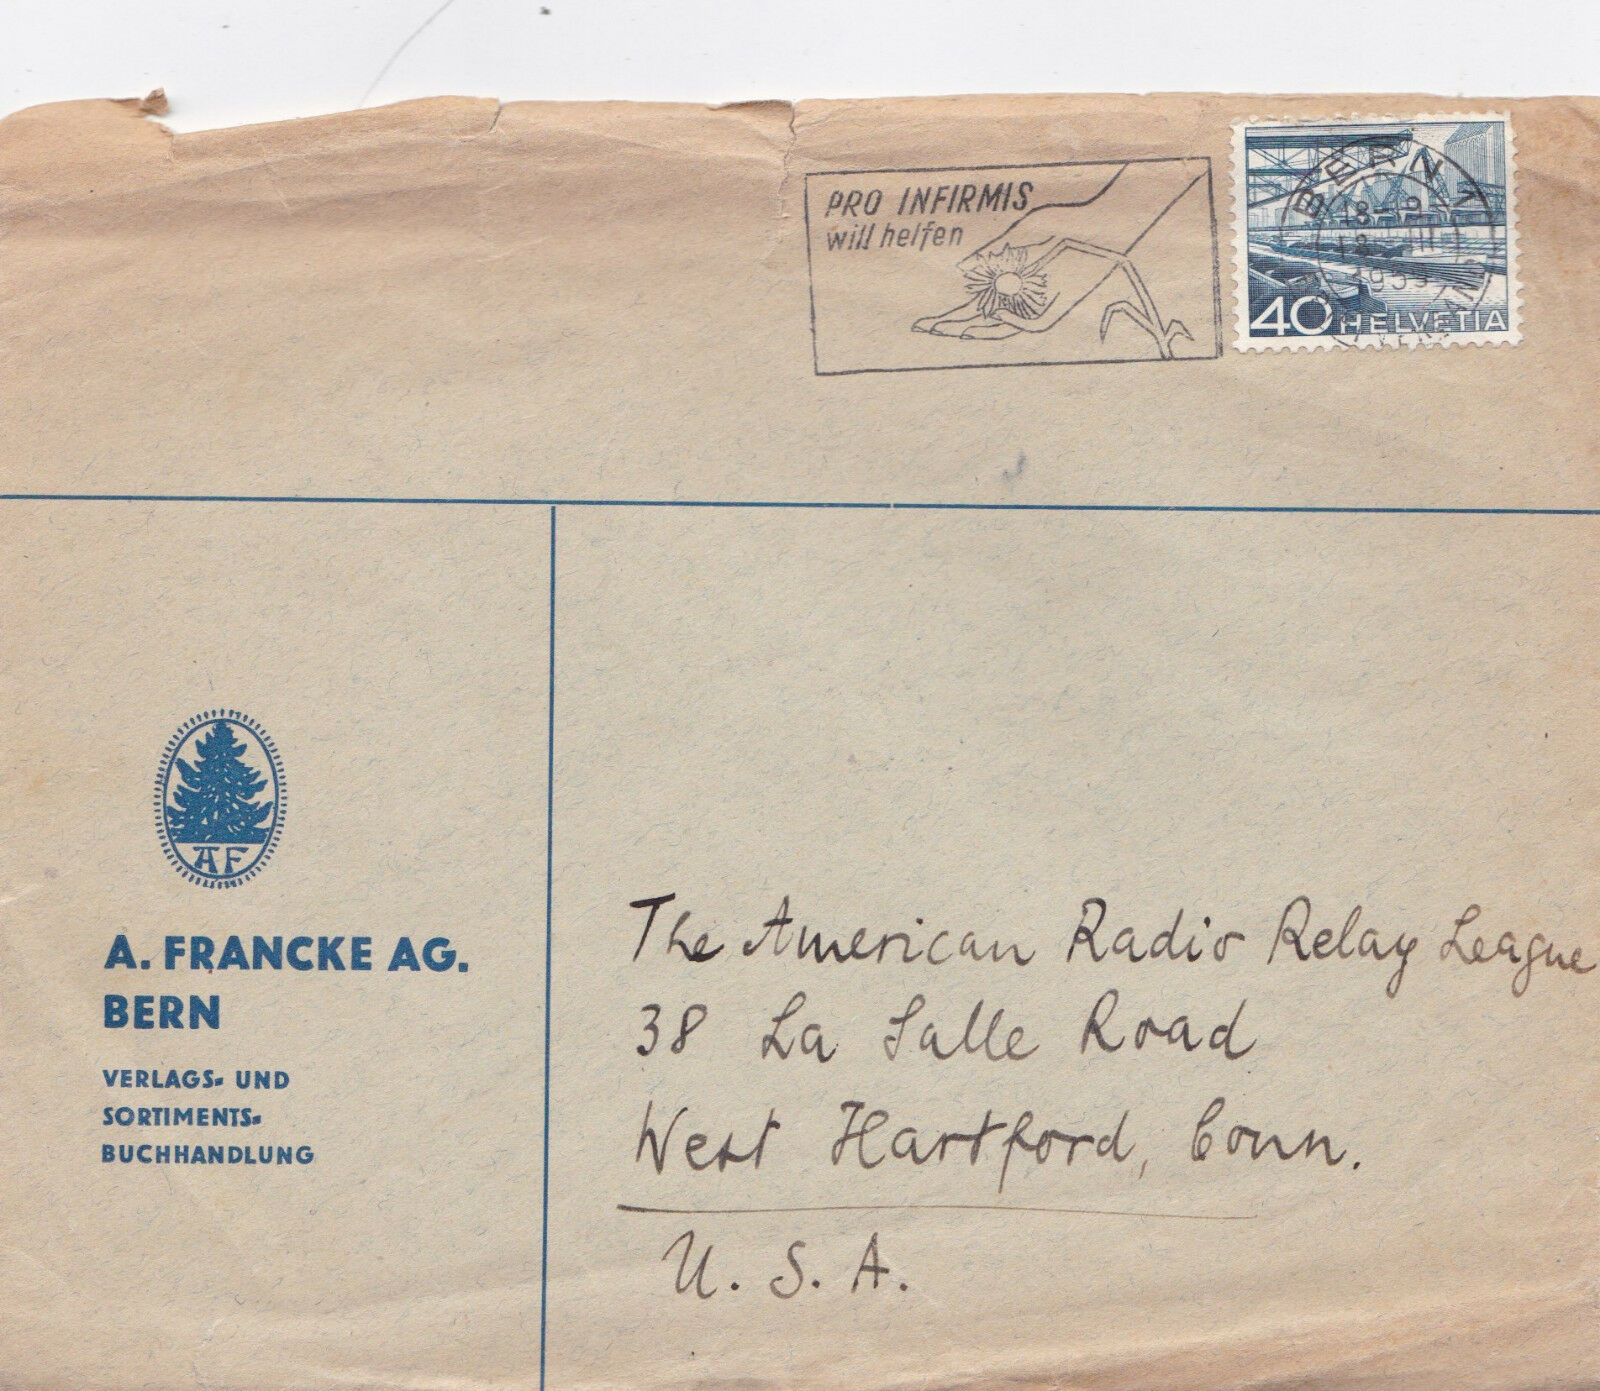 PRO INFIRMIS
will helfen
BERN 1
40 HELVETIA
AF
A. FRANCKE AG.
BERN
VERLAGS- UND
SORTIMENTS-
BUCHHANDLUNG
The American Radio Relay League
38 La Salle Road
West Hartford, Conn.
U. S. A.